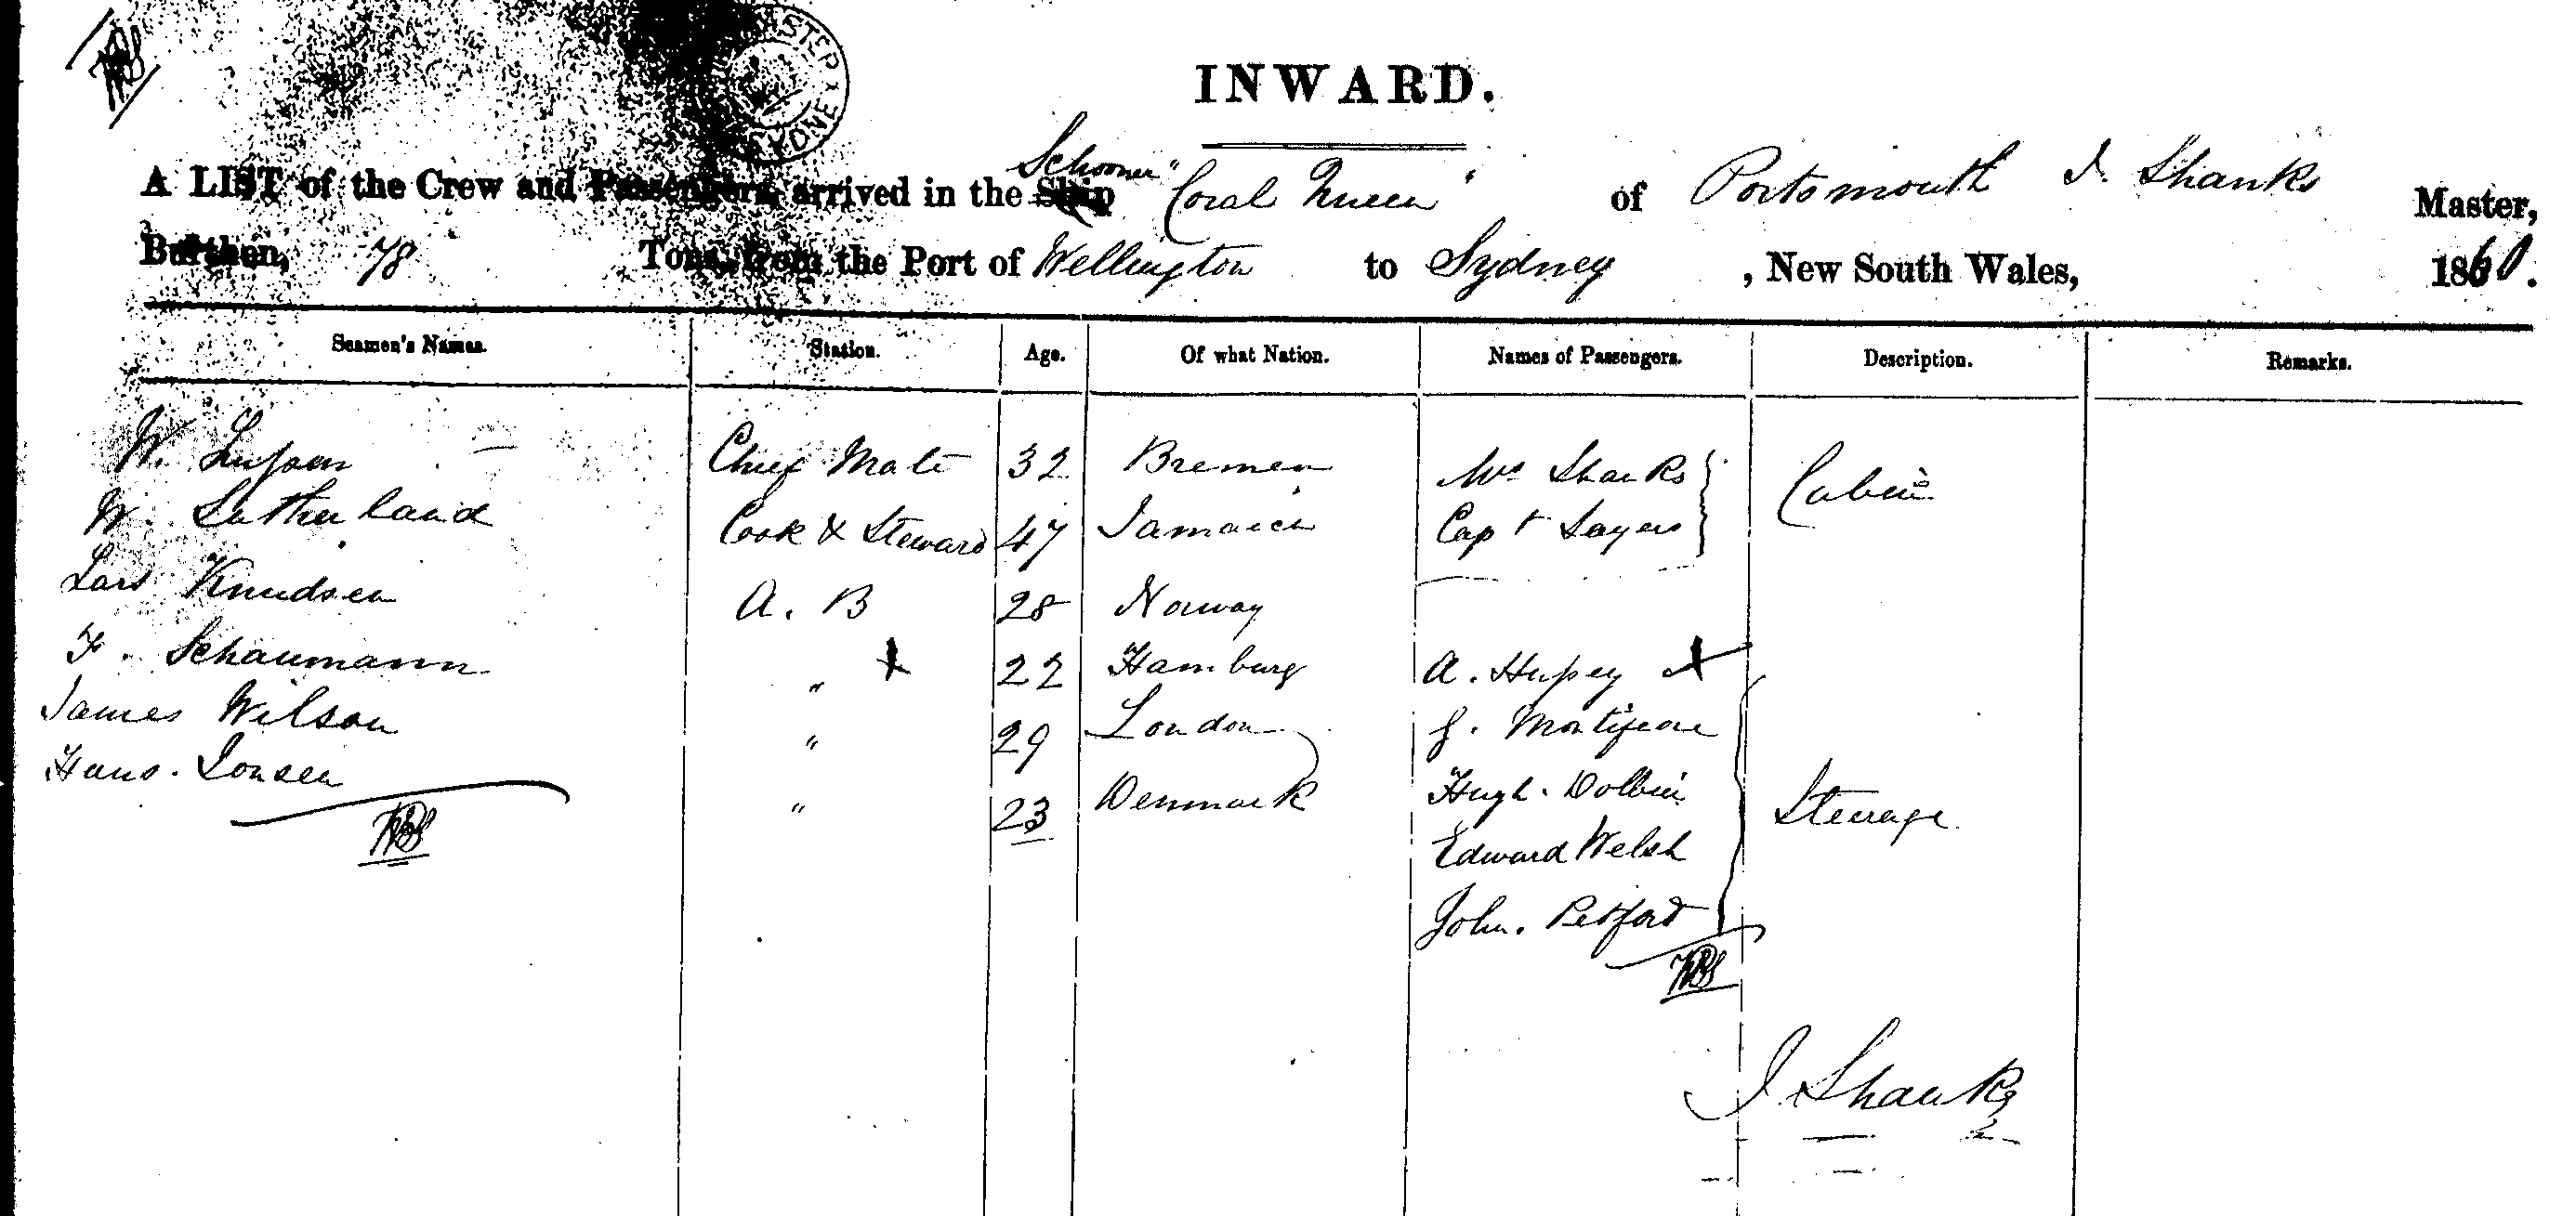 INWARD.
A LIST of the Crew and Passengers, arrived in the Ship Schooner "Coral Queen" of Portsmouth J. Shanks Master,
Burthen, 78 Tons, from the Port of Wellington to Sydney, New South Wales, 1860.
Seamen's Names. Station. Age. Of what Nation. Names of Passengers. Description. Remarks.
W. Chief Mate 32 Bremen Mrs Shanks Cabin
W. Sutherland Cook & Steward 47 Jamaica Capt Sayers
Lars Knudsen A. B 28 Norway
F. Schaumann " 22 Hamburg A.
James Wilson " 29 London
Hans. Jonsen " 23 Denmark Hugh. Dolbin Steerage
Edward Welsh
John.
J. Shanks